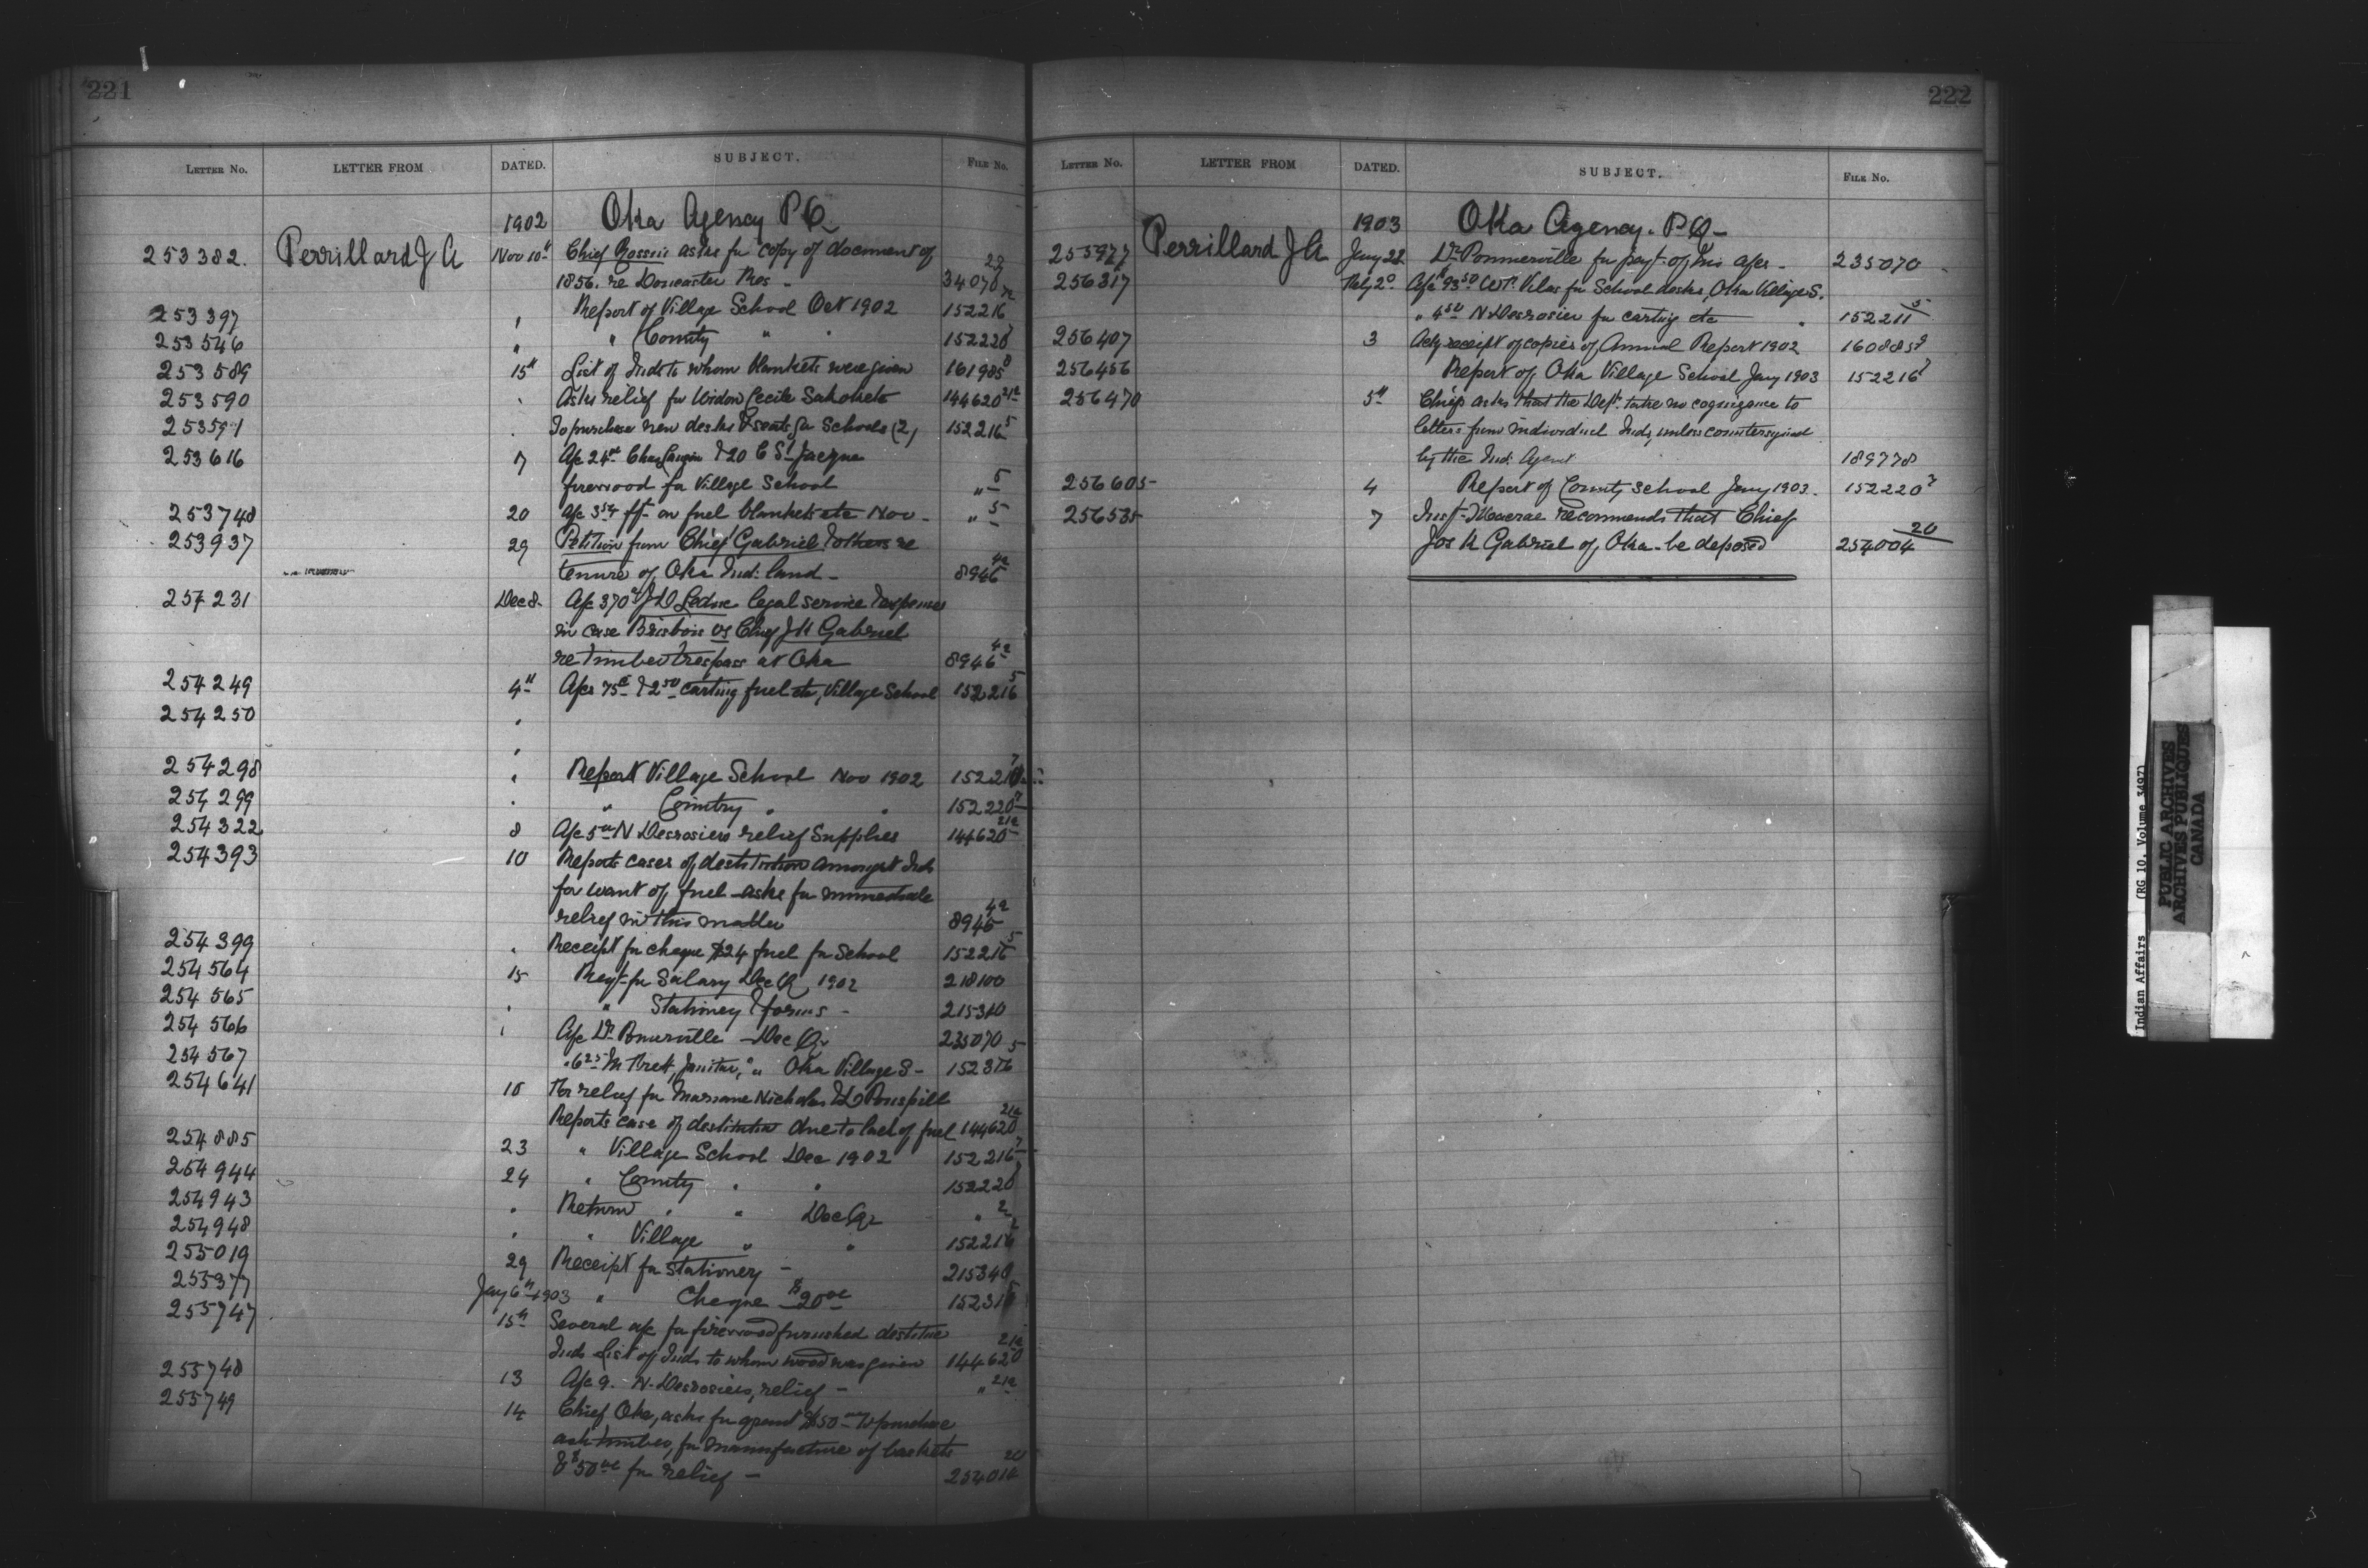 221
LETTER No. LETTER FROM DATED. SUBJECT. FILE No.
1902 Oka Agency P.Q.
253382. Perrillard J A Nov 10th Chief asks for copy of document of
1856. re Doncaster Res - 34070
253397 " Report of Village School Oct 1902 152216
253546 " " County " " 152220
253589 15th List of Inds to whom blankets were given 161985
253590 " Asks relief for Widow Cecile 144620 21a
253591 " To purchase new desks & seats for Schools (2) 152216 5
253616 17 A/c 24 00 Chas & 20 C St Jacque
firewood for Village School " 5
253748 20 A/c frt on fuel blankets etc Nov - " 5
253937 29 Petition from Chief Gabriel & others re
tenure of Oka Ind: land - 8946 4a
254231 Dec 8. A/c 370 J D Leduc legal service & expenses
in case Brisbois vs Chief J K Gabriel
re timber trespass at Oka 8946 4a
254249 4th A/cs 75c & 2 50 carting fuel etc, Village School 152216 5
254250 "
"
254298 " Report Village School Nov 1902 152216 7
254299 " " Country " " 152220 7
254322 8 A/c 5 00 N Desrosiers relief Supplies 144620 21a
254393 10 Reports cases of destitution amongst Inds
for want of fuel - asks for immediate
relief in this matter 8946 4a
254399 " Receipt for cheque $24 fuel for School 152216 5
254564 15 Reqt for Salary Dec Q 1902 218100
254565 " " Stationery & forms - 215340
254566 " A/c Dr. Pomerville - Dec Qr 235070
254567 " 6 25 M Janitor, " " Oka Village S - 152316 5
254641 18 For relief for Nicholas & L
Reports case of destitution due to lack of fuel 144620 21a
254885 23 " Village School Dec 1902 152216 7
254944 24 " County " " 152220
254943 " Return " " Dec Qr " 2
254948 " " Village " " 152216 2
255019 29 Receipt for Stationery - 215340
255377 Jany 6th 1903 " Cheque $20 00 152316
255747 15th Several a/c for firewood furnished destitute
Inds List of Inds to whom wood was given 144620 21a
255748 13 A/c 9. N. Desrosiers, relief - " 21a
255749 14 Chief Oka, asks for grant $50 00 to purchase
ash timber, for manufacture of baskets
& $50 00 for relief - 254014 20
222
LETTER No. LETTER FROM DATED. SUBJECT. FILE No.
1903 Oka Agency. P.Q-
255977 Perrillard J A Jany 22 Dr. Pommerville for payt of his a/cs - 235070
256317 Feby 2 A/c $93 50 Wm. Vilas for School desks, Oka Village S.
" 4 50 N Desrosier for carting etc " 152211 5
256407 3 Ackg receipt of copies of Annual Report 1902 160885
256456 Report of Oka Village School Jany 1903 152216 7
256470 5th Chiefs asks that the Dept. take no cognizance to
letters from individual Inds, unless countersigned
by the Ind. Agent 189778
256605 4 Report of County School Jany 1903. 152220 7
256535 7 Inspr Macrae recommends that Chief
Jos K Gabriel of Oka be deposed 254004 20
Indian Affairs (RG 10, Volume 3497)
PUBLIC ARCHIVES
ARCHIVES PUBLIQUES
CANADA